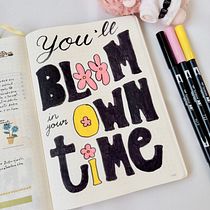 You'll
BLOOM
in your OWN
time